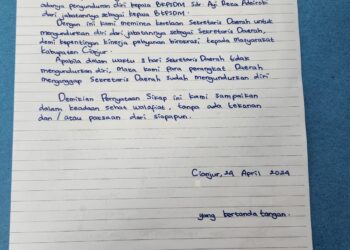 adanya pengunduran diri kepala BKPSDM Sdr Aji Reza Adairobi
dari jabatannya sebagai kepala BKPSDM.
Dengan ini kami meminta kerelaan Sekretaris Daerah untuk
mengundurkan diri dari jabatannya sebagai Sekretaris Daerah,
demi kepentingan kinerja pelayanan birokrasi kepada Masyarakat
Kabupaten Cianjur.
Apabila dalam waktu 3 hari Sekretaris Daerah tidak
mengundurkan diri, Maka kami para perangkat Daerah
menganggap Sekretaris Daerah sudah mengundurkan diri
Demikian Pernyataan Sikap ini kami sampaikan
dalam keadaan sehat walafiat, tanpa ada tekanan
dan / atau paksaan dari siapapun.
Cianjur, 24 April 2024
yang bertanda tangan.